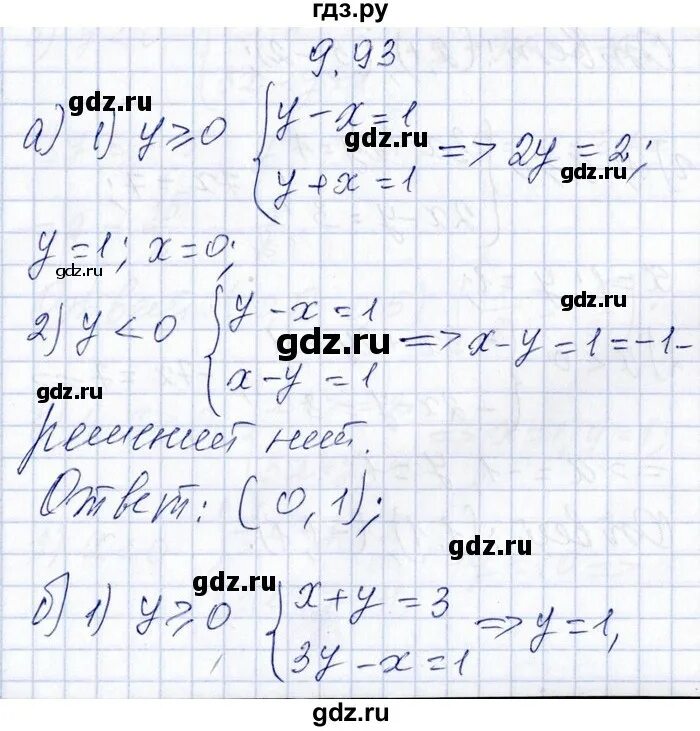 гдз.ру
9.93
gdz.ru
а) 1) y ⩾ 0 { y - x = 1
gdz.ru
y + x = 1 => 2y = 2;
gdz.ru
y = 1; x = 0;
gdz.ru
2) y < 0 { y - x = 1
gdz.ru
gdz.ru
x - y = 1 => x - y = 1 = -1 -
gdz.ru
решений нет.
Ответ: (0, 1);
gdz.ru
gdz.ru
б) 1) y ⩾ 0 { x + y = 3
3y - x = 1 => y = 1,
gdz.ru